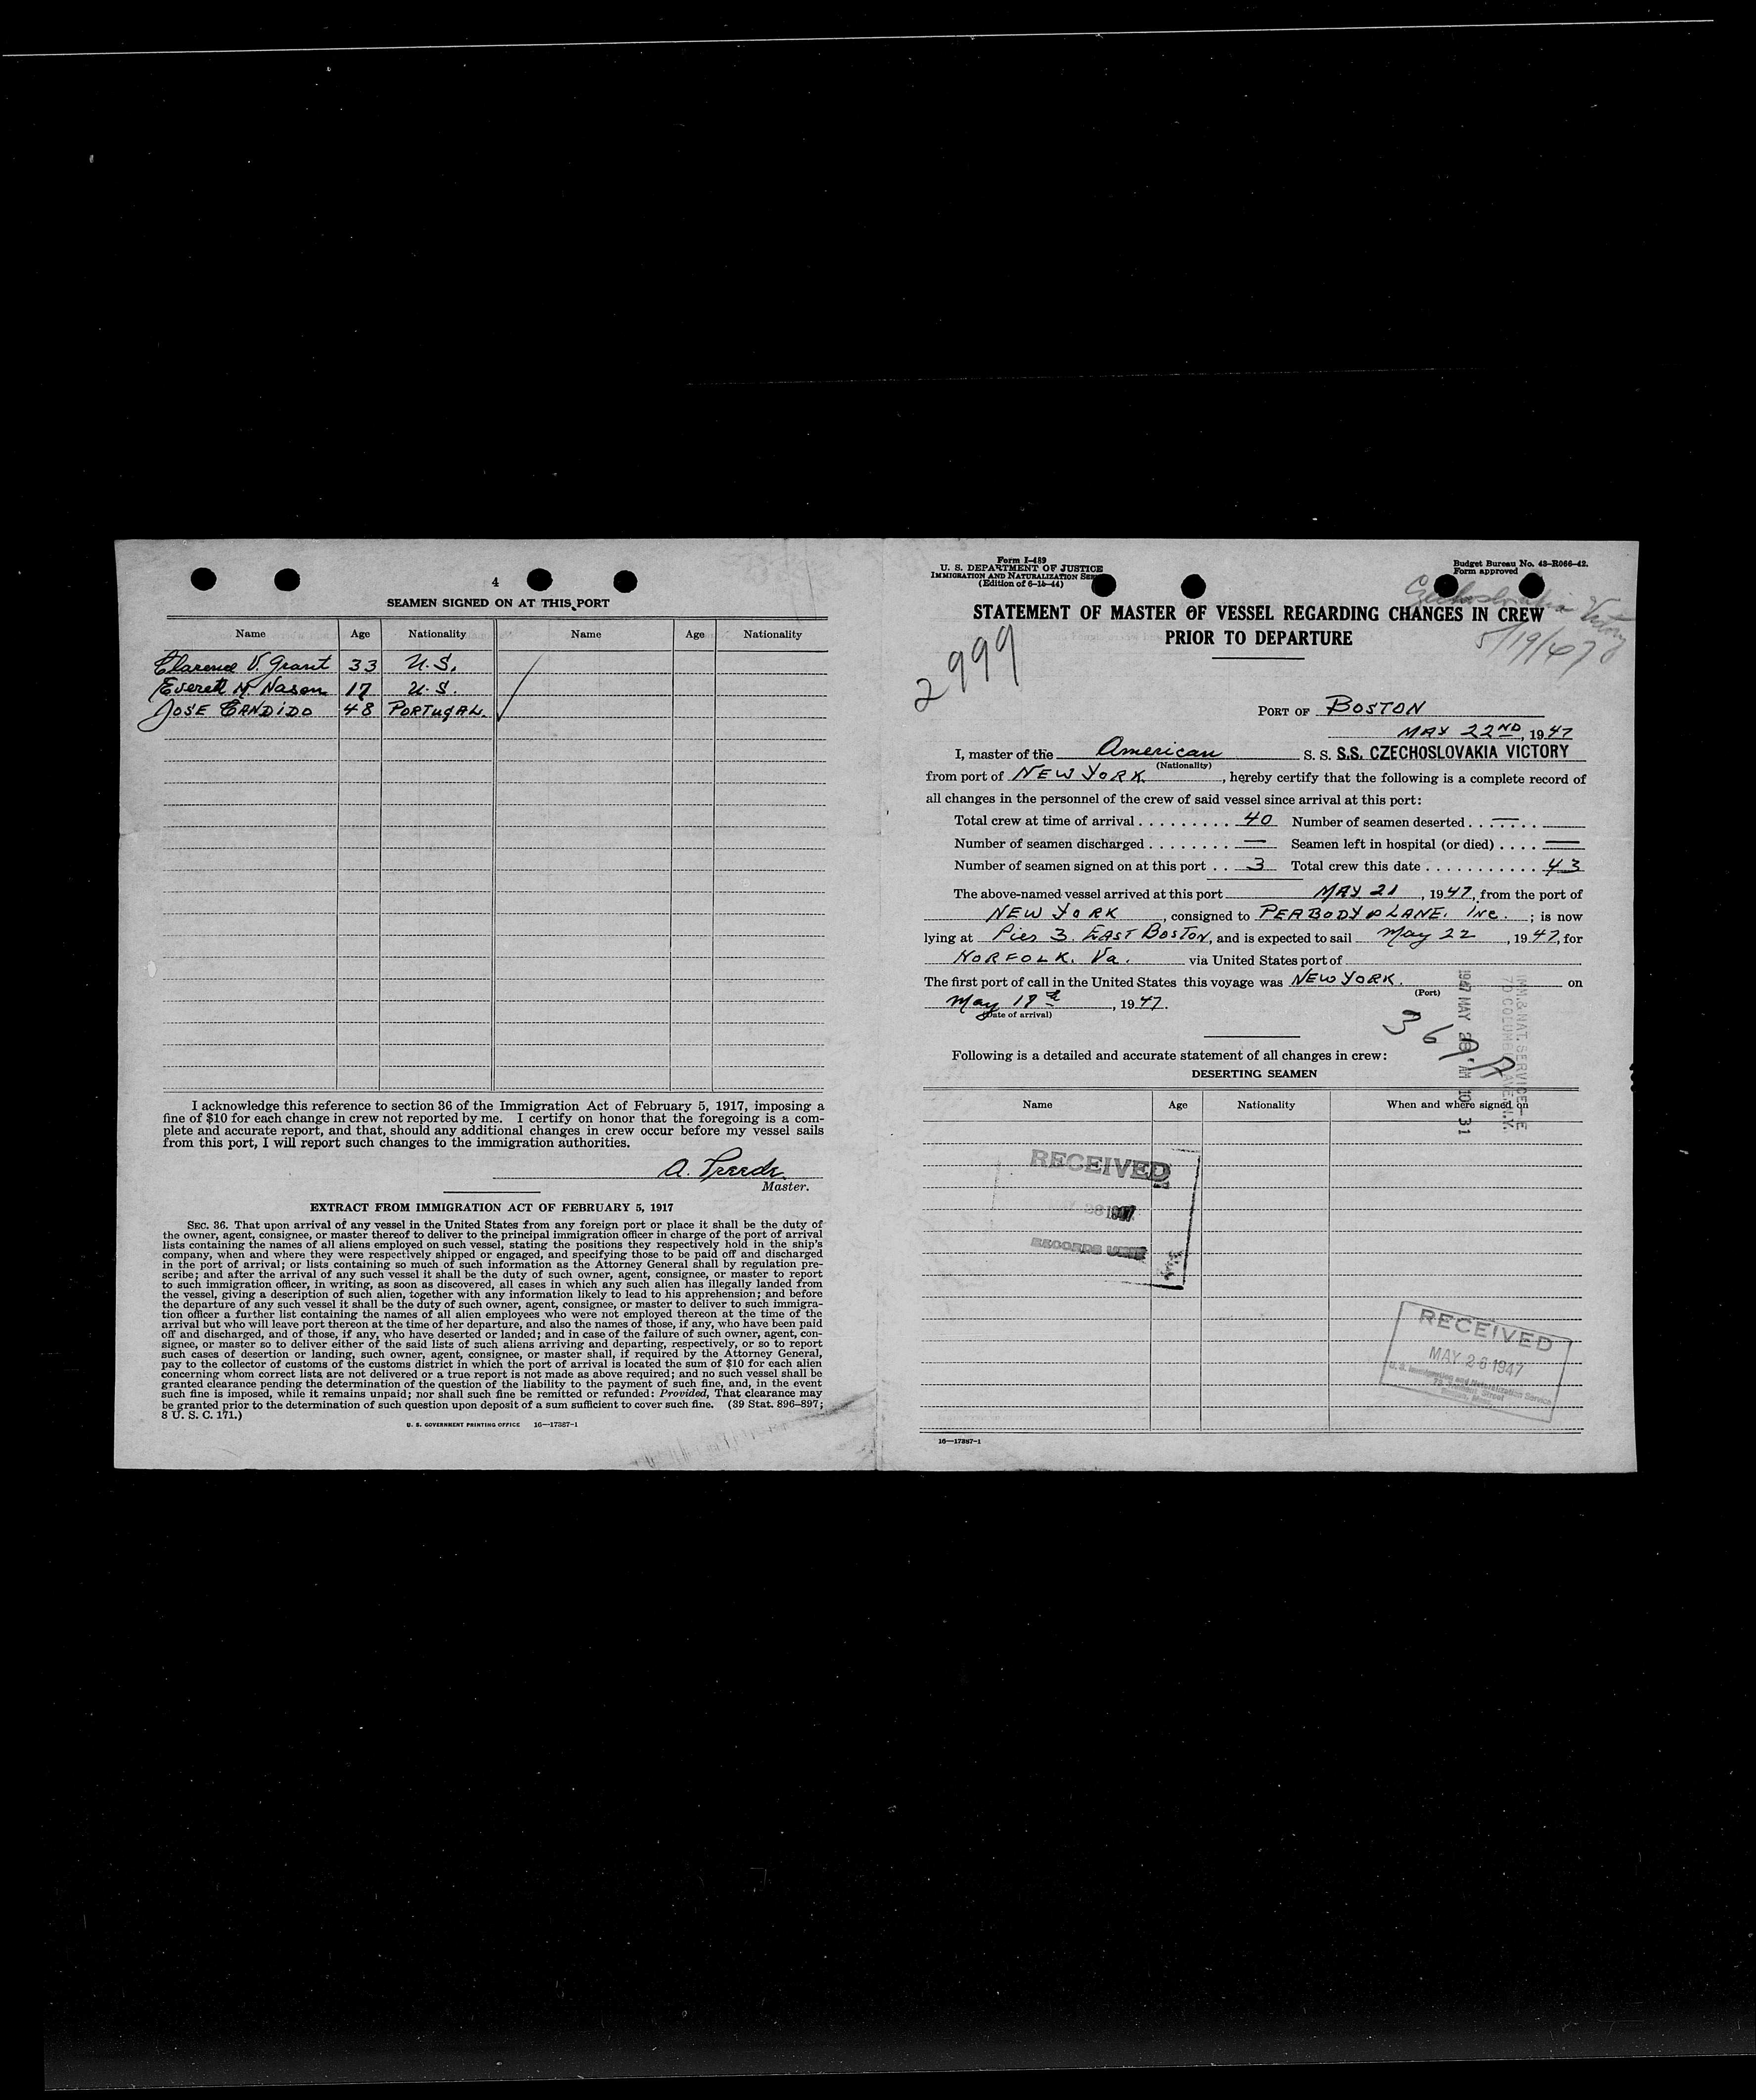 4
SEAMEN SIGNED ON AT THIS PORT
Name Age Nationality Name Age Nationality
Clarence V. Grant 33 U.S.
Everett M. Nason 17 U.S.
JOSE CANDIDO 48 PORTUGAL.
I acknowledge this reference to section 36 of the Immigration Act of February 5, 1917, imposing a
fine of $10 for each change in crew not reported by me. I certify on honor that the foregoing is a com-
plete and accurate report, and that, should any additional changes in crew occur before my vessel sails
from this port, I will report such changes to the immigration authorities.
A.
Master.
EXTRACT FROM IMMIGRATION ACT OF FEBRUARY 5, 1917
SEC. 36. That upon arrival of any vessel in the United States from any foreign port or place it shall be the duty of
the owner, agent, consignee, or master thereof to deliver to the principal immigration officer in charge of the port of arrival
lists containing the names of all aliens employed on such vessel, stating the positions they respectively hold in the ship's
company, when and where they were respectively shipped or engaged, and specifying those to be paid off and discharged
in the port of arrival; or lists containing so much of such information as the Attorney General shall by regulation pre-
scribe; and after the arrival of any such vessel it shall be the duty of such owner, agent, consignee, or master to report
to such immigration officer, in writing, as soon as discovered, all cases in which any such alien has illegally landed from
the vessel, giving a description of such alien, together with any information likely to lead to his apprehension; and before
the departure of any such vessel it shall be the duty of such owner, agent, consignee, or master to deliver to such immigra-
tion officer a further list containing the names of all alien employees who were not employed thereon at the time of the
arrival but who will leave port thereon at the time of her departure, and also the names of those, if any, who have been paid
off and discharged, and of those, if any, who have deserted or landed; and in case of the failure of such owner, agent, con-
signee, or master so to deliver either of the said lists of such aliens arriving and departing, respectively, or so to report
such cases of desertion or landing, such owner, agent, consignee, or master shall, if required by the Attorney General,
pay to the collector of customs of the customs district in which the port of arrival is located the sum of $10 for each alien
concerning whom correct lists are not delivered or a true report is not made as above required; and no such vessel shall be
granted clearance pending the determination of the question of the liability to the payment of such fine, and, in the event
such fine is imposed, while it remains unpaid; nor shall such fine be remitted or refunded: Provided, That clearance may
be granted prior to the determination of such question upon deposit of a sum sufficient to cover such fine. (39 Stat. 896-897;
8 U. S. C. 171.)
U. S. GOVERNMENT PRINTING OFFICE 16—17387-1
Form I-489
U. S. DEPARTMENT OF JUSTICE
IMMIGRATION AND NATURALIZATION SER
(Edition of 6-15-44)
Budget Bureau No. 43-R066-42.
Form approved
Czechoslovakia Victory
5/19/47
STATEMENT OF MASTER OF VESSEL REGARDING CHANGES IN CREW
PRIOR TO DEPARTURE
2999
PORT OF BOSTON
MAY 22ND, 1947
I, master of the American S. S. S.S. CZECHOSLOVAKIA VICTORY
(Nationality)
from port of NEW YORK, hereby certify that the following is a complete record of
all changes in the personnel of the crew of said vessel since arrival at this port:
Total crew at time of arrival . . . . . . . . . 40 Number of seamen deserted . . . . . . . —
Number of seamen discharged . . . . . . . . — Seamen left in hospital (or died) . . . . —
Number of seamen signed on at this port . . 3 Total crew this date . . . . . . . . . . . . 43
The above-named vessel arrived at this port MAY 21, 1947, from the port of
NEW YORK, consigned to PEABODY & LANE. INC. ; is now
lying at Pier 3. EAST BOSTON, and is expected to sail May 22, 1947, for
NORFOLK. Va. via United States port of
The first port of call in the United States this voyage was NEW YORK. on
(Port)
May 19th, 1947.
(Date of arrival)
Following is a detailed and accurate statement of all changes in crew:
DESERTING SEAMEN
Name Age Nationality When and where signed on
IMM. & NAT. SERVICE
70 COLUMBUS AVE. N.Y.
1947 MAY 28 AM 10 31
RECEIVED
1947
RECORDS UNIT
RECEIVED
MAY 26 1947
U. S. Immigration and Naturalization Service
16—17387-1